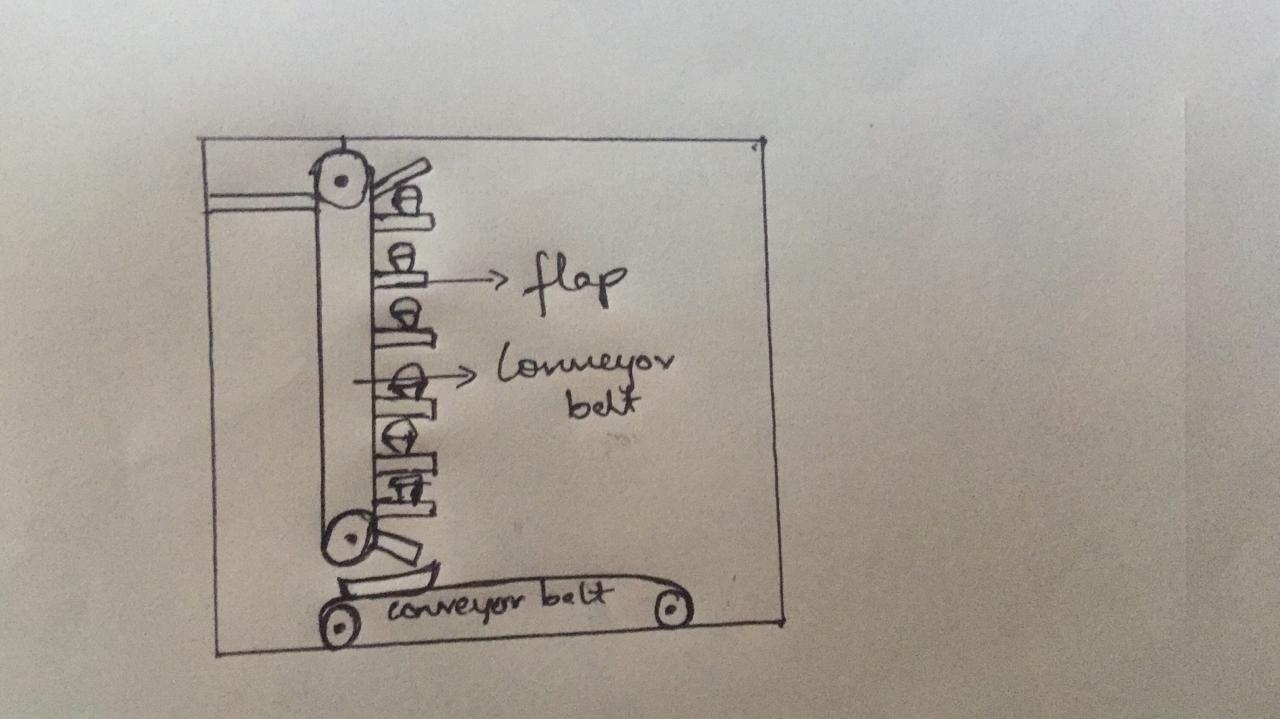 flap
Conveyor
belt
conveyor belt